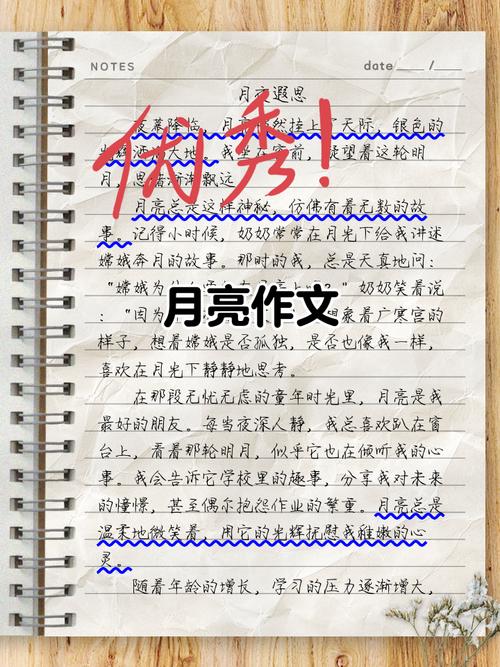 NOTES
date /
月夜遐思
夜幕降临，月亮悄然挂上了天际，银色的
光辉洒大地。我坐在窗前，凝望着这轮明
月，思绪渐渐飘远
优秀！
月亮总是这样神秘，仿佛有着无数的故
事。记得小时候，奶奶常常在月光下给我讲述
嫦娥奔月的故事。那时的我，总是天真地问：
“嫦娥为 ”奶奶笑着说
：“因为 想象着广寒宫的
月亮作文
样子，想着嫦娥是否孤独，是否也像我一样，
喜欢在月光下静静地思考。
在那段无忧无虑的童年时光里，月亮是我
最好的朋友。每当夜深人静，我总喜欢趴在窗
台上，看着那轮明月，似乎它也在倾听我的心
事。我会告诉它学校里的趣事，分享我对未来
的憧憬，甚至偶尔抱怨作业的繁重。月亮总是
温柔地微笑着，用它的光辉抚慰我稚嫩的心
灵。
随着年龄的增长，学习的压力逐渐增大，